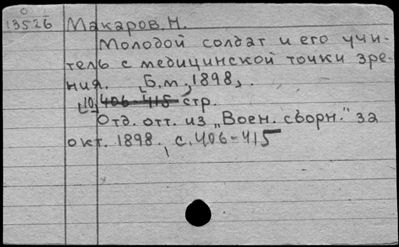 13526
Макаров Н.
Молодой солдат и его учи-
тель с медицинской точки зре-
ния. [Б.м., 1898,.
10. 406-415 стр.
Отд. отт. из „Воен. сборн." за
окт. 1898., с. 406-415